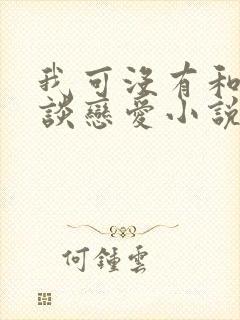 我可沒有和
談戀愛小說
何鍾雲